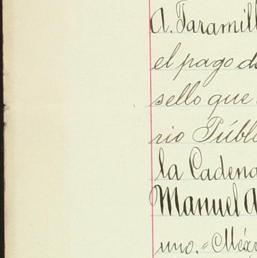 A. Jaramill
el pago d
sello que
rio Públ
la Cadena
Manuel A
uno.- Méx